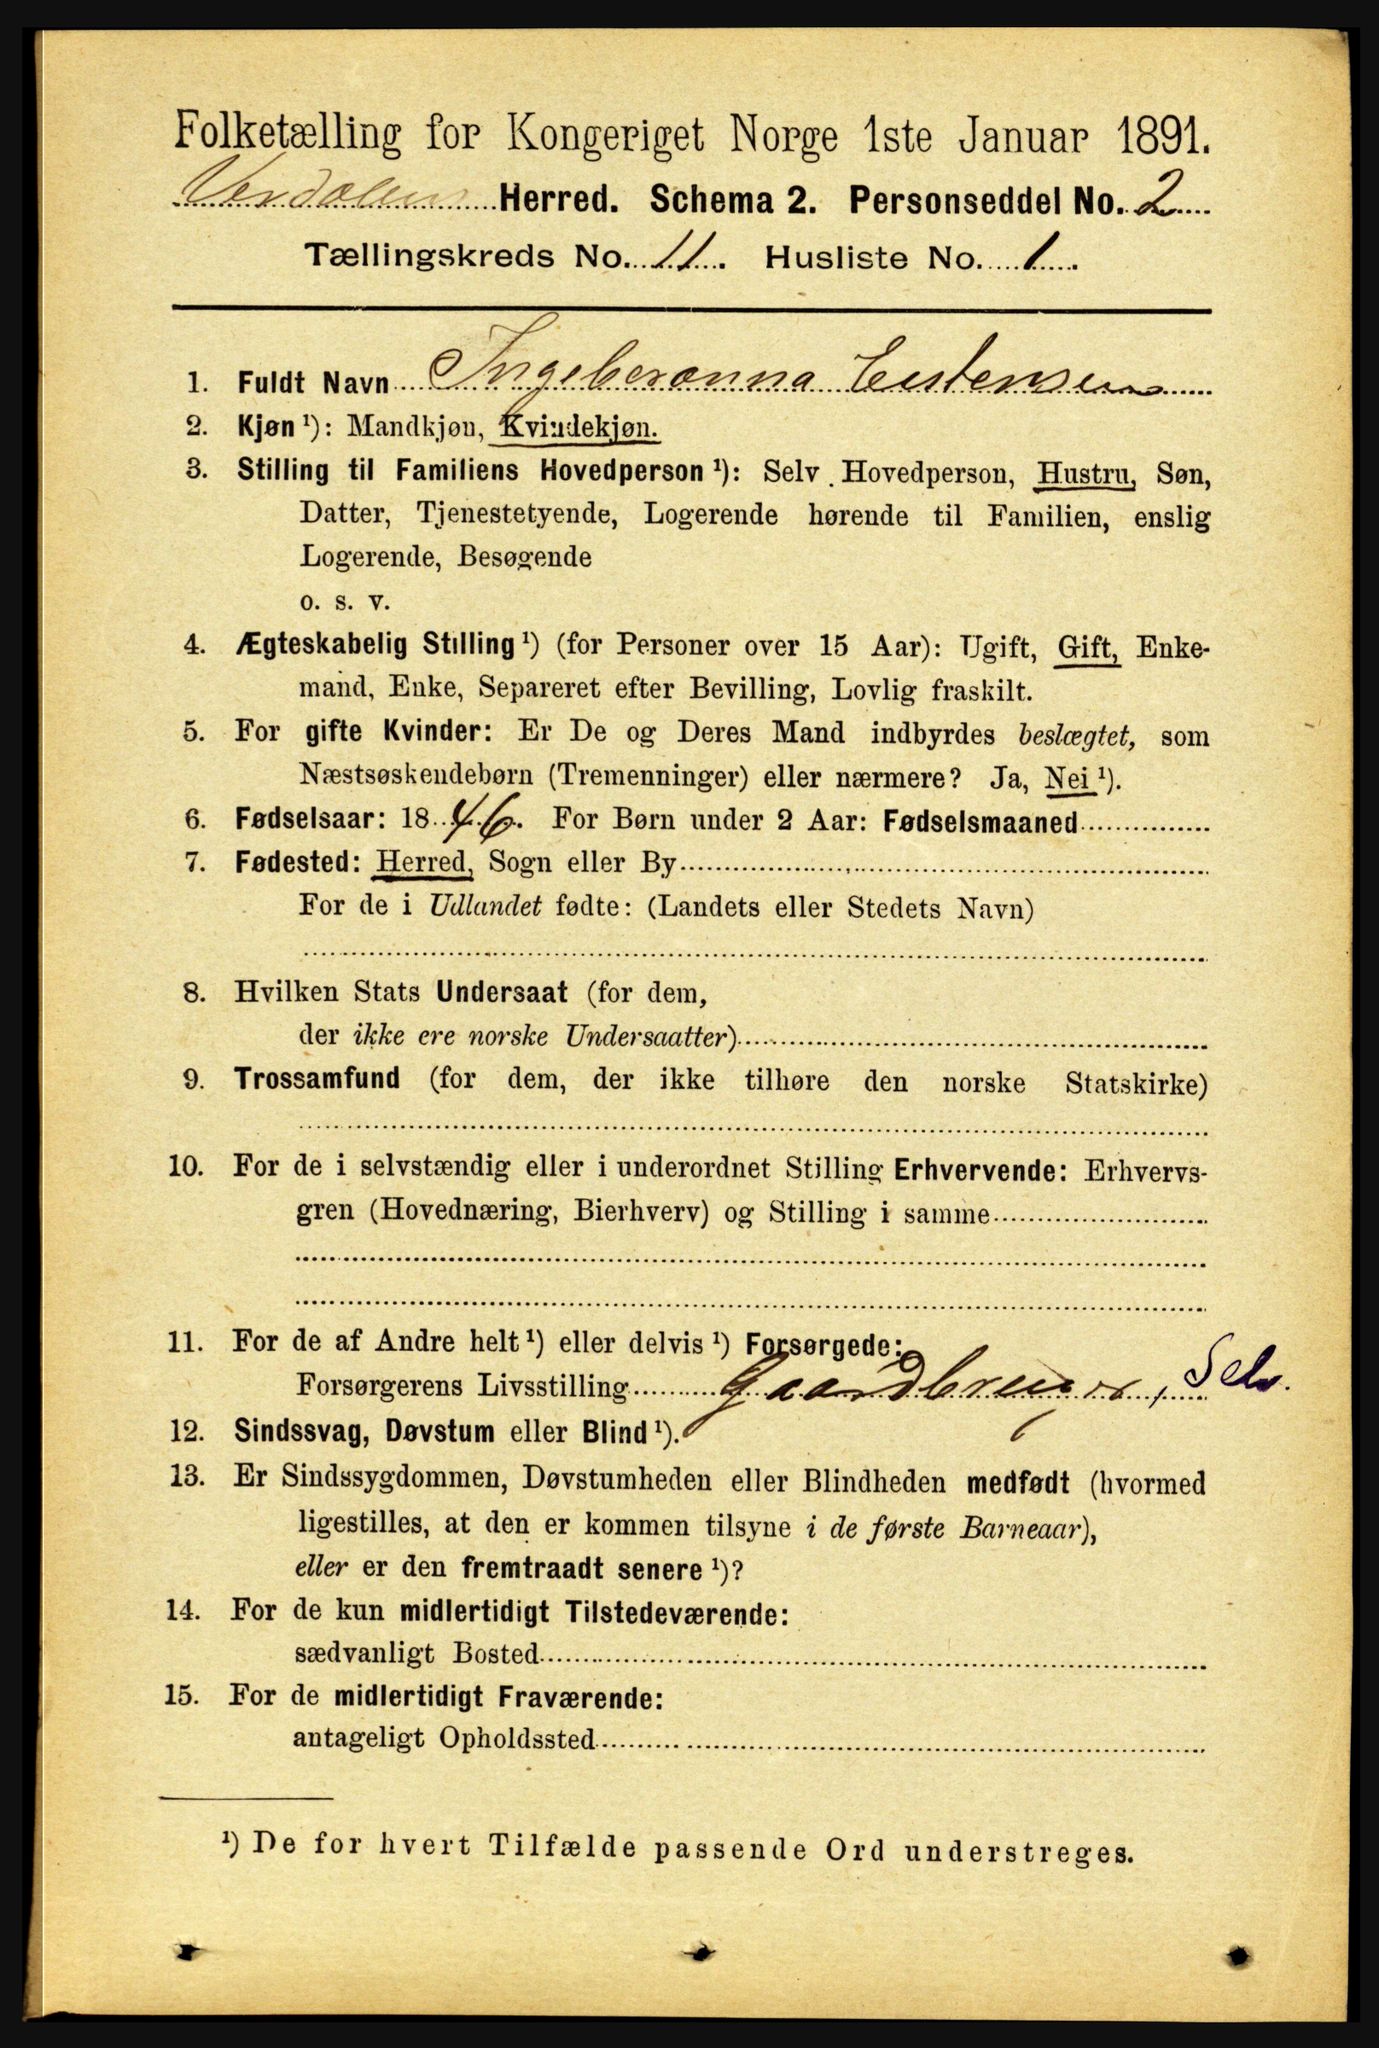 Folketælling for Kongeriget Norge 1ste Januar 1891.
Verdalens Herred. Schema 2. Personseddel No. 2
Tællingskreds No. 11. Husliste No. 1.
1. Fuldt Navn Ingeberanna Eistensen
2. Kjøn ¹): Mandkjøn, Kvindekjøn.
3. Stilling til Familiens Hovedperson ¹): Selv Hovedperson, Hustru, Søn,
Datter, Tjenestetyende, Logerende hørende til Familien, enslig
Logerende, Besøgende
o. s. v.
4. Ægteskabelig Stilling ¹) (for Personer over 15 Aar): Ugift, Gift, Enke-
mand, Enke, Separeret efter Bevilling, Lovlig fraskilt.
5. For gifte Kvinder: Er De og Deres Mand indbyrdes beslægtet, som
Næstsøskendebørn (Tremenninger) eller nærmere? Ja, Nei ¹).
6. Fødselsaar: 1846. For Børn under 2 Aar: Fødselsmaaned
7. Fødested: Herred, Sogn eller By
For de i Udlandet fødte: (Landets eller Stedets Navn)
8. Hvilken Stats Undersaat (for dem,
der ikke ere norske Undersaatter)
9. Trossamfund (for dem, der ikke tilhøre den norske Statskirke)
10. For de i selvstændig eller i underordnet Stilling Erhvervende: Erhvervs-
gren (Hovednæring, Bierhverv) og Stilling i samme
11. For de af Andre helt ¹) eller delvis ¹) Forsørgede:
Forsørgerens Livsstilling Gaardbruger, Selv.
12. Sindssvag, Døvstum eller Blind ¹).
13. Er Sindssygdommen, Døvstumheden eller Blindheden medfødt (hvormed
ligestilles, at den er kommen tilsyne i de første Barneaar),
eller er den fremtraadt senere ¹)?
14. For de kun midlertidigt Tilstedeværende:
sædvanligt Bosted
15. For de midlertidigt Fraværende:
antageligt Opholdssted
¹) De for hvert Tilfælde passende Ord understreges.